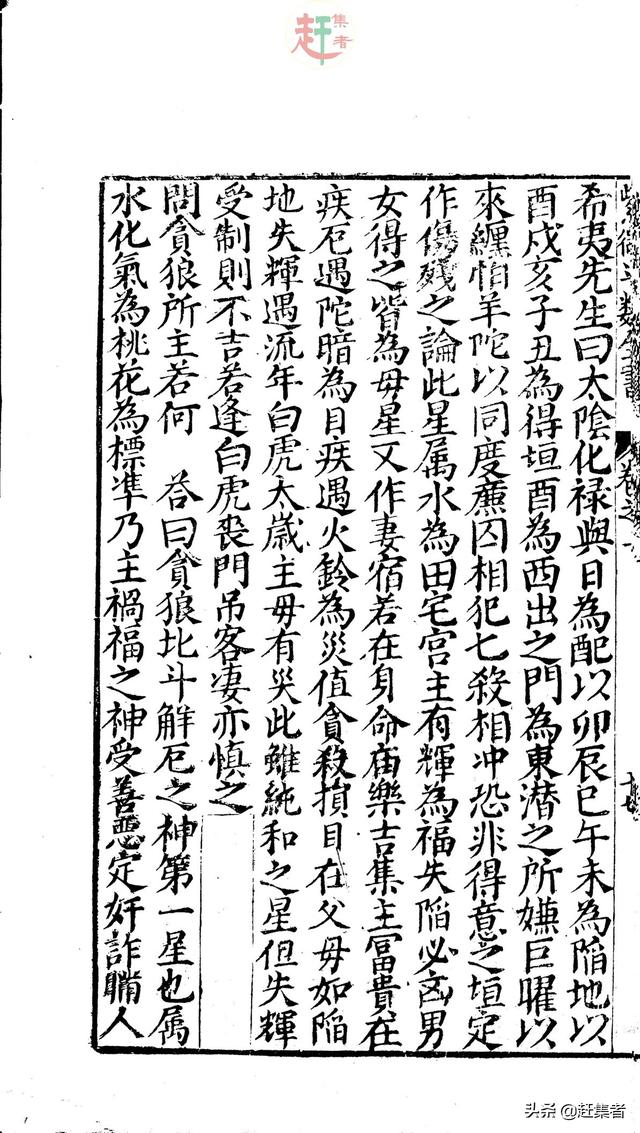 赶集者
希夷先生曰太陰化禄與日為配以卯辰巳午未為陷地以
酉戍亥子丑為得垣酉為西出之門為東潜之所嫌巨曜以
來纏怕羊陀以同度廉囚相犯七殺相冲恐非得意之垣定
作傷殘之論此星属水為田宅宫主有輝為福失陷必凶男
女得之皆為毋星又作妻宿若在身命庙樂吉集主富貴在
疾厄遇陀暗為目疾遇火鈴為災值貪殺損目在父毋如陷
地失輝遇流年白虎太歲主毋有災此雖純和之星但失輝
受制則不吉若逢白虎丧門吊客凄亦慎之
問貪狼所主若何 答曰貪狼北斗解厄之神第一星也属
水化氣為桃花為標準乃主禍福之神受善惡定奸詐瞞人
头条 @赶集者